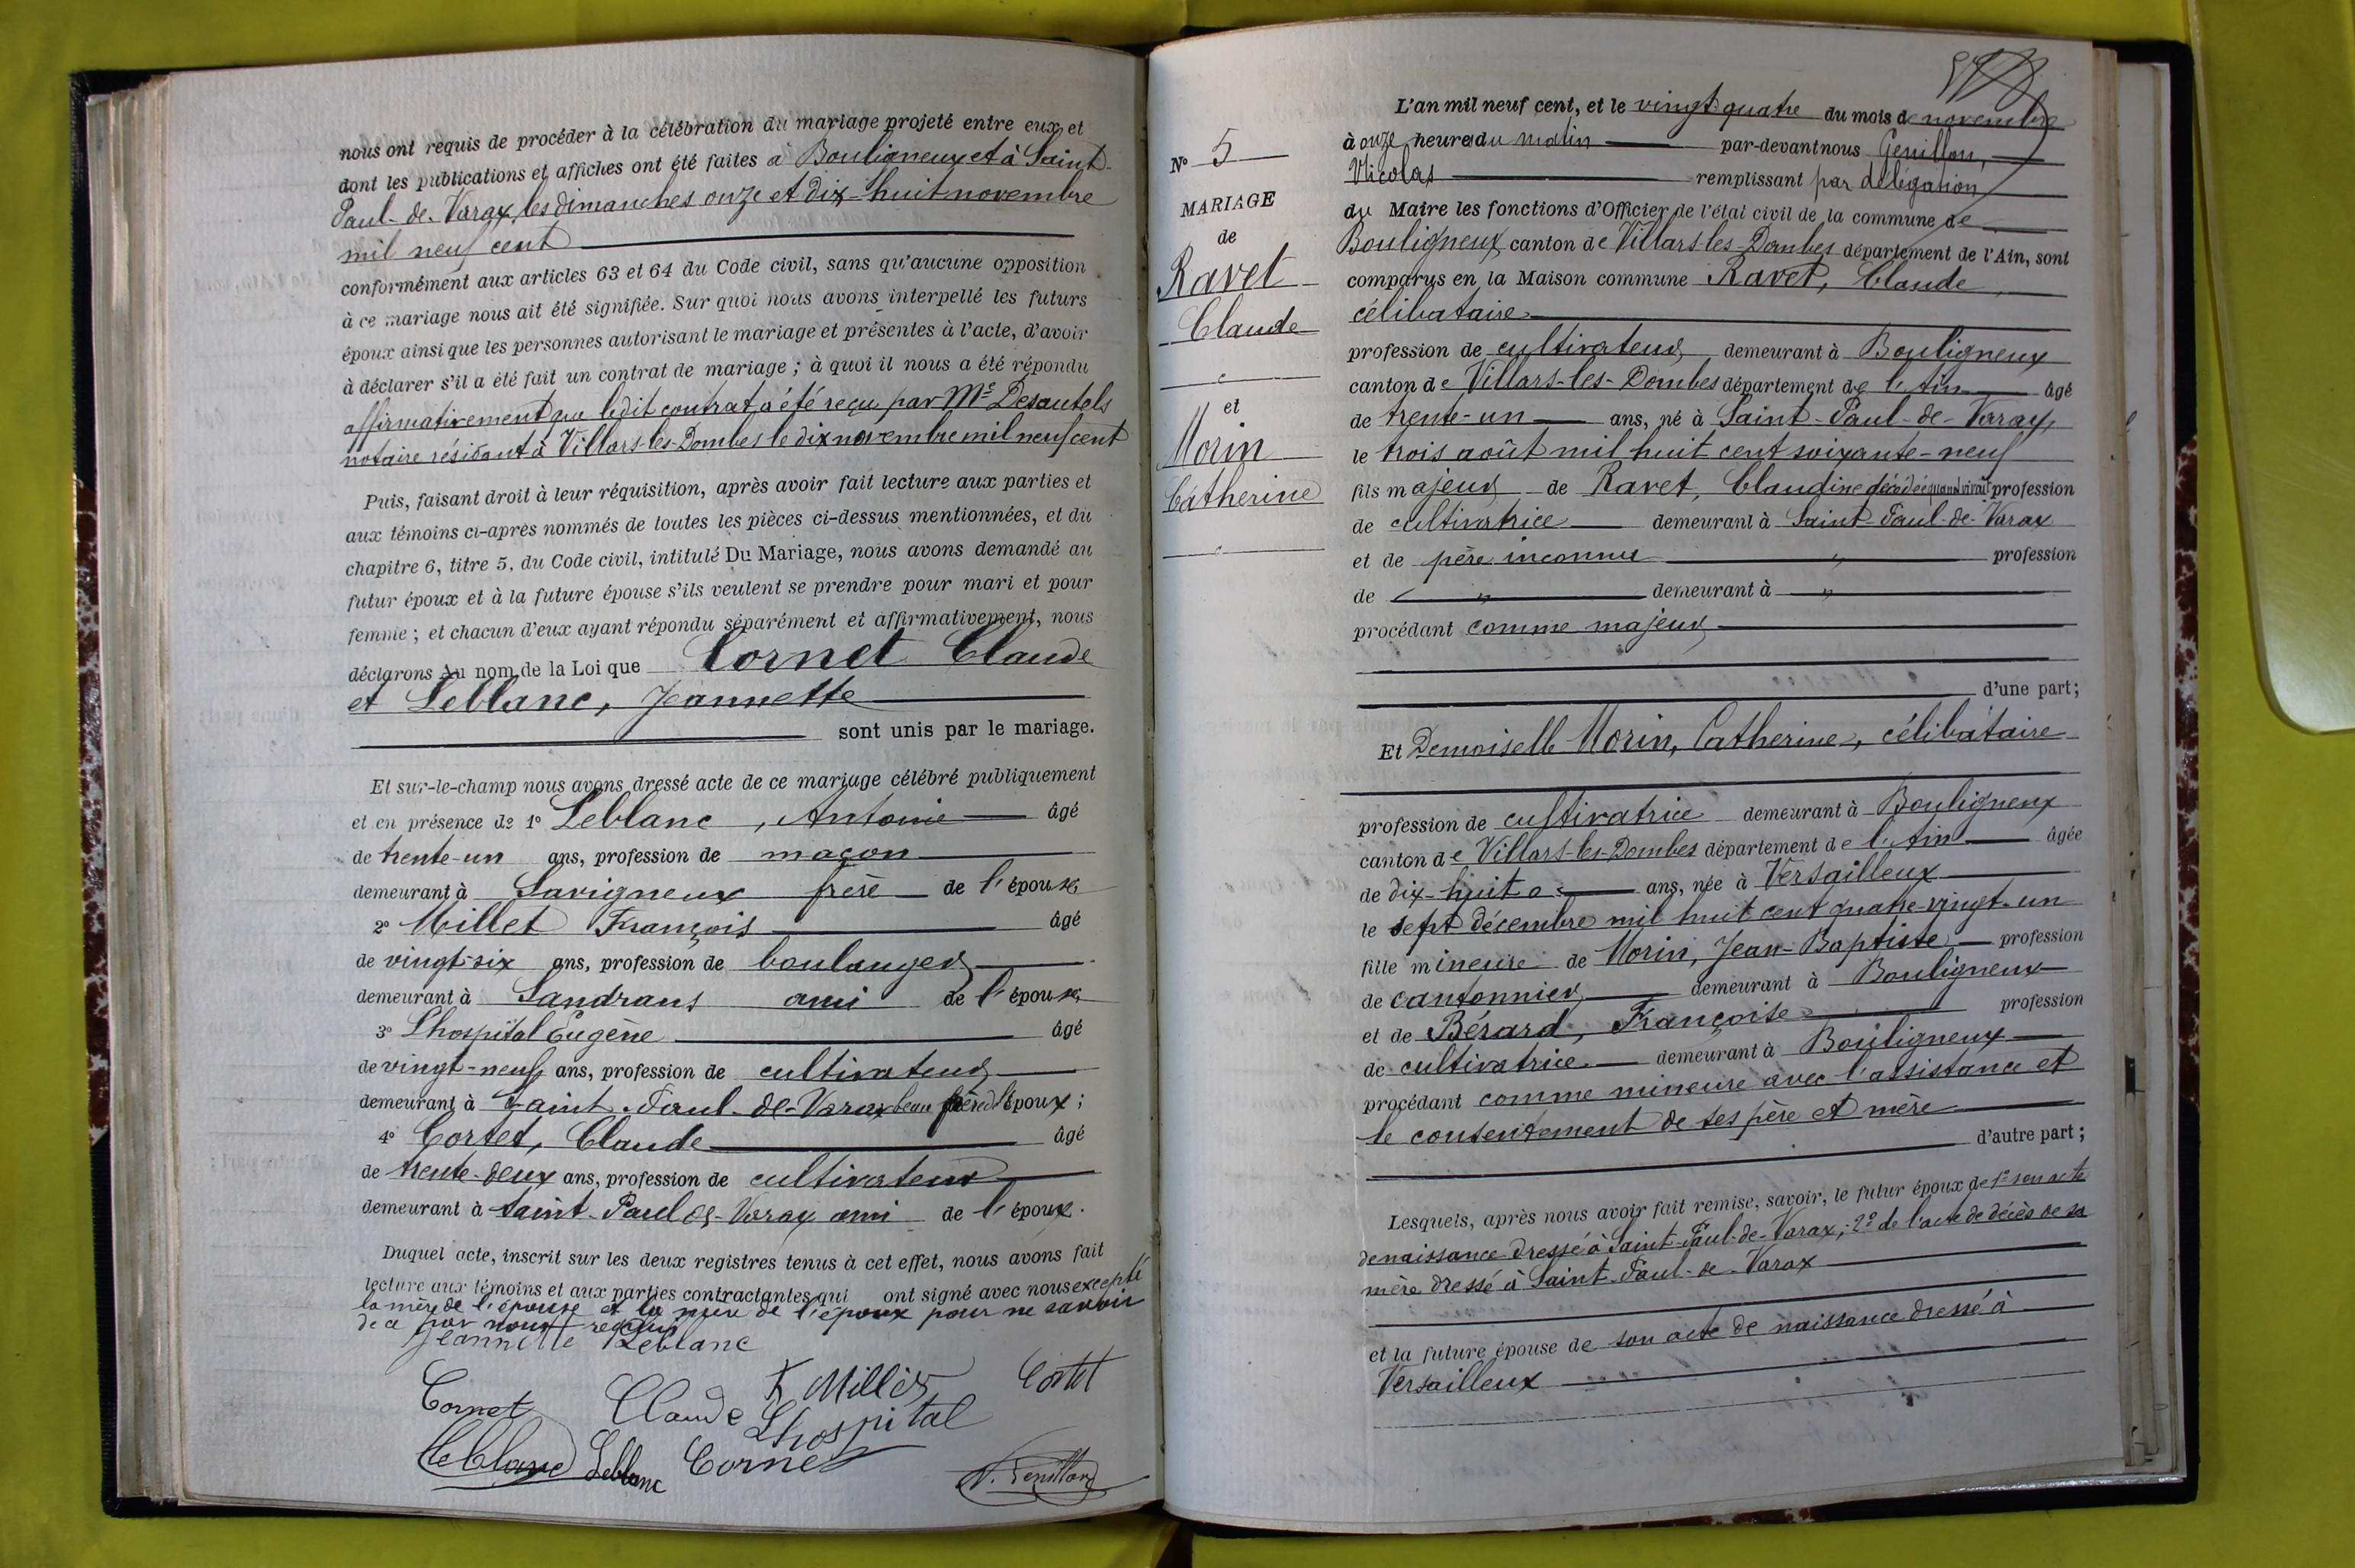 nous ont requis de procéder à la célébration du mariage projeté entre eux et
dont les publications et affiches ont été faites à Bouligneux et à Saint-
Paul-de-Varax, les dimanches onze et dix-huit novembre
mil neuf cent
conformément aux articles 63 et 64 du Code civil, sans qu'aucune opposition
à ce mariage nous ait été signifiée. Sur quoi nous avons interpellé les futurs
époux ainsi que les personnes autorisant le mariage et présentes à l'acte, d'avoir
à déclarer s'il a été fait un contrat de mariage ; à quoi il nous a été répondu
affirmativement que ledit contrat a été reçu par Me Desautels
notaire résidant à Villars-les-Dombes le dix novembre mil neuf cent
Puis, faisant droit à leur réquisition, après avoir fait lecture aux parties et
aux témoins ci-après nommés de toutes les pièces ci-dessus mentionnées, et du
chapitre 6, titre 5, du Code civil, intitulé Du Mariage, nous avons demandé au
futur époux et à la future épouse s'ils veulent se prendre pour mari et pour
femme ; et chacun d'eux ayant répondu séparément et affirmativement, nous
déclarons Au nom de la Loi que Cornet Claude
et Leblanc, Jeannette
sont unis par le mariage.
Et sur-le-champ nous avons dressé acte de ce mariage célébré publiquement
et en présence de 1° Leblanc, Antoine âgé
de trente-un ans, profession de maçon
demeurant à Savigneux frère de l'épouse
2° Millet François âgé
de vingt-six ans, profession de boulanger
demeurant à Sandrans ami de l'épouse
3° Lhospital Eugène âgé
de vingt-neuf ans, profession de cultivateur
demeurant à Saint-Paul-de-Varax beau frère de l'époux ;
4° Cortet, Claude âgé
de trente-deux ans, profession de cultivateur
demeurant à Saint-Paul-de-Varax ami de l'époux.
Duquel acte, inscrit sur les deux registres tenus à cet effet, nous avons fait
lecture aux témoins et aux parties contractantes qui ont signé avec nous excepté
la mère de l'épouse et la mère de l'époux pour ne savoir
de ce par nous requis
Jeannette Leblanc
Cornet Claude F Millet Cortet
Lhospital
Leblanc Leblanc Cornet N. Genillon
N° 5
MARIAGE
de
Ravet
Claude
et
Morin
Catherine
L'an mil neuf cent, et le vingt-quatre du mois de novembre
à onze heures du matin par-devant nous Genillon,
Nicolas remplissant par délégation
du Maire les fonctions d'Officier de l'état civil de la commune de
Bouligneux canton de Villars-les-Dombes département de l'Ain, sont
comparus en la Maison commune Ravet, Claude,
célibataire
profession de cultivateur demeurant à Bouligneux
canton de Villars-les-Dombes département de l'Ain âgé
de trente-un ans, né à Saint-Paul-de-Varax,
le trois août mil huit cent soixante-neuf
fils majeur de Ravet, Claudine décédée quand vivait profession
de cultivatrice demeurant à Saint-Paul-de-Varax
et de père inconnu " profession
de " demeurant à "
procédant comme majeur
d'une part ;
Et Demoiselle Morin, Catherine, célibataire
profession de cultivatrice demeurant à Bouligneux
canton de Villars-les-Dombes département de l'Ain âgée
de dix-huit ans, née à Versailleux
le sept décembre mil huit cent quatre-vingt-un
fille mineure de Morin, Jean-Baptiste profession
de cantonnier demeurant à Bouligneux
et de Bérard, Françoise profession
de cultivatrice demeurant à Bouligneux
procédant comme mineure avec l'assistance et
le consentement de ses père et mère
d'autre part ;
Lesquels, après nous avoir fait remise, savoir, le futur époux de 1° son acte
de naissance dressé à Saint-Paul-de-Varax ; 2° de l'acte de décès de sa
mère dressé à Saint-Paul-de-Varax
et la future épouse de son acte de naissance dressé à
Versailleux